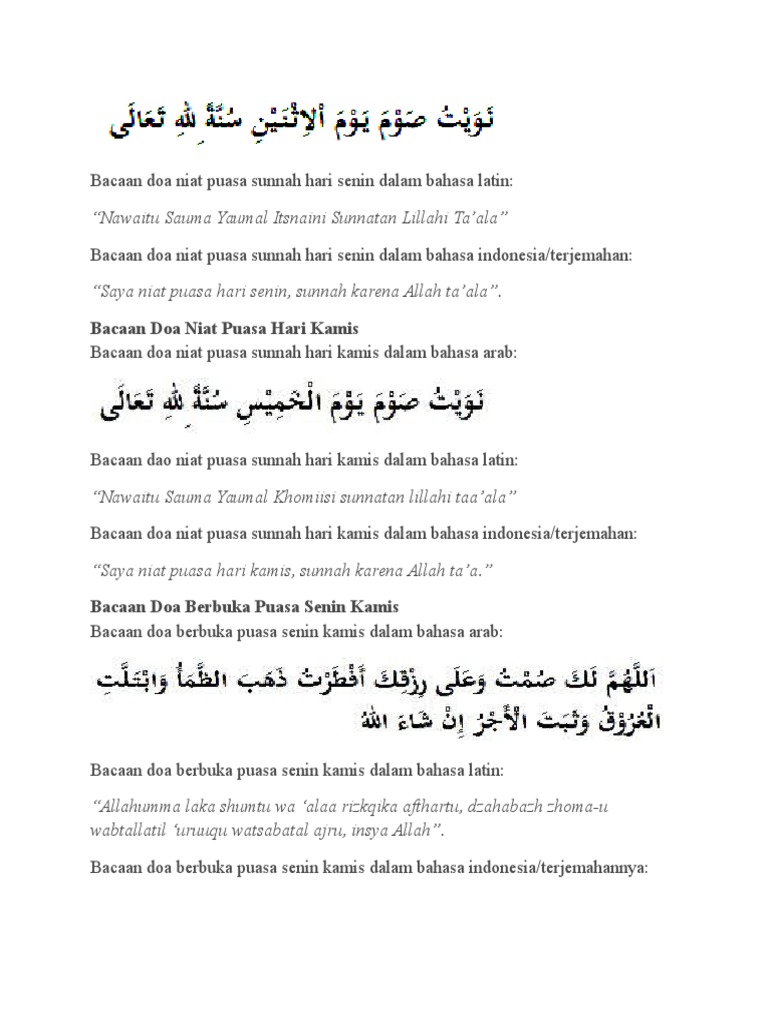 نَوَيْتُ صَوْمَ يَوْمَ اْلاِثْنَيْنِ سُنَّةً لِلهِ تَعَالَى
Bacaan doa niat puasa sunnah hari senin dalam bahasa latin:
“Nawaitu Sauma Yaumal Itsnaini Sunnatan Lillahi Ta’ala”
Bacaan doa niat puasa sunnah hari senin dalam bahasa indonesia/terjemahan:
“Saya niat puasa hari senin, sunnah karena Allah ta’ala”.
Bacaan Doa Niat Puasa Hari Kamis
Bacaan doa niat puasa sunnah hari kamis dalam bahasa arab:
نَوَيْتُ صَوْمَ يَوْمَ الْخَمِيْسِ سُنَّةً لِلهِ تَعَالَى
Bacaan dao niat puasa sunnah hari kamis dalam bahasa latin:
“Nawaitu Sauma Yaumal Khomiisi sunnatan lillahi taa’ala”
Bacaan doa niat puasa sunnah hari kamis dalam bahasa indonesia/terjemahan:
“Saya niat puasa hari kamis, sunnah karena Allah ta’a.”
Bacaan Doa Berbuka Puasa Senin Kamis
Bacaan doa berbuka puasa senin kamis dalam bahasa arab:
اَللَّهُمَّ لَكَ صُمْتُ وَعَلَى رِزْقِكَ أَفْطَرْتُ ذَهَبَ الظَّمَأُ وَابْتَلَّتِ
الْعُرُوْقُ وَثَبَتَ الْأَجْرُ إِنْ شَاءَ اللهُ
Bacaan doa berbuka puasa senin kamis dalam bahasa latin:
“Allahumma laka shumtu wa ‘alaa rizkqika afthartu, dzahabazh zhoma-u
wabtallatil ‘uruuqu watsabatal ajru, insya Allah”.
Bacaan doa berbuka puasa senin kamis dalam bahasa indonesia/terjemahannya: